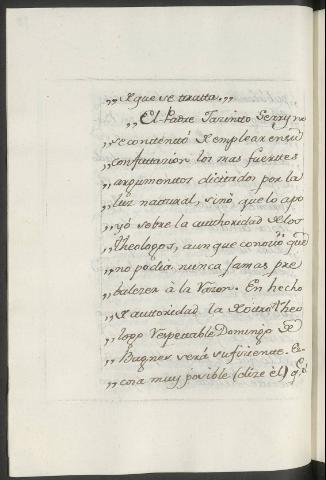 „ d que se tratta. „
„ El Padre Jazintto Serry no
„ se contenttó d emplear en su
„ confuttazion los mas fuerttes
„ argumenttos dicttados por la
„ luz natural, sinó que lo apo
„ yó sobre la authoridad d los
„ Theologos, aunque conozió que
„ no podia nunca jamas pre
„ balezer à la Razon. En hecho
„ d auttoridad la d ottro Theo
„ logo Respettable Domingo d
„ Bagnes será sufiziente. Es
„ cosa muy posible (dize èl) q.e